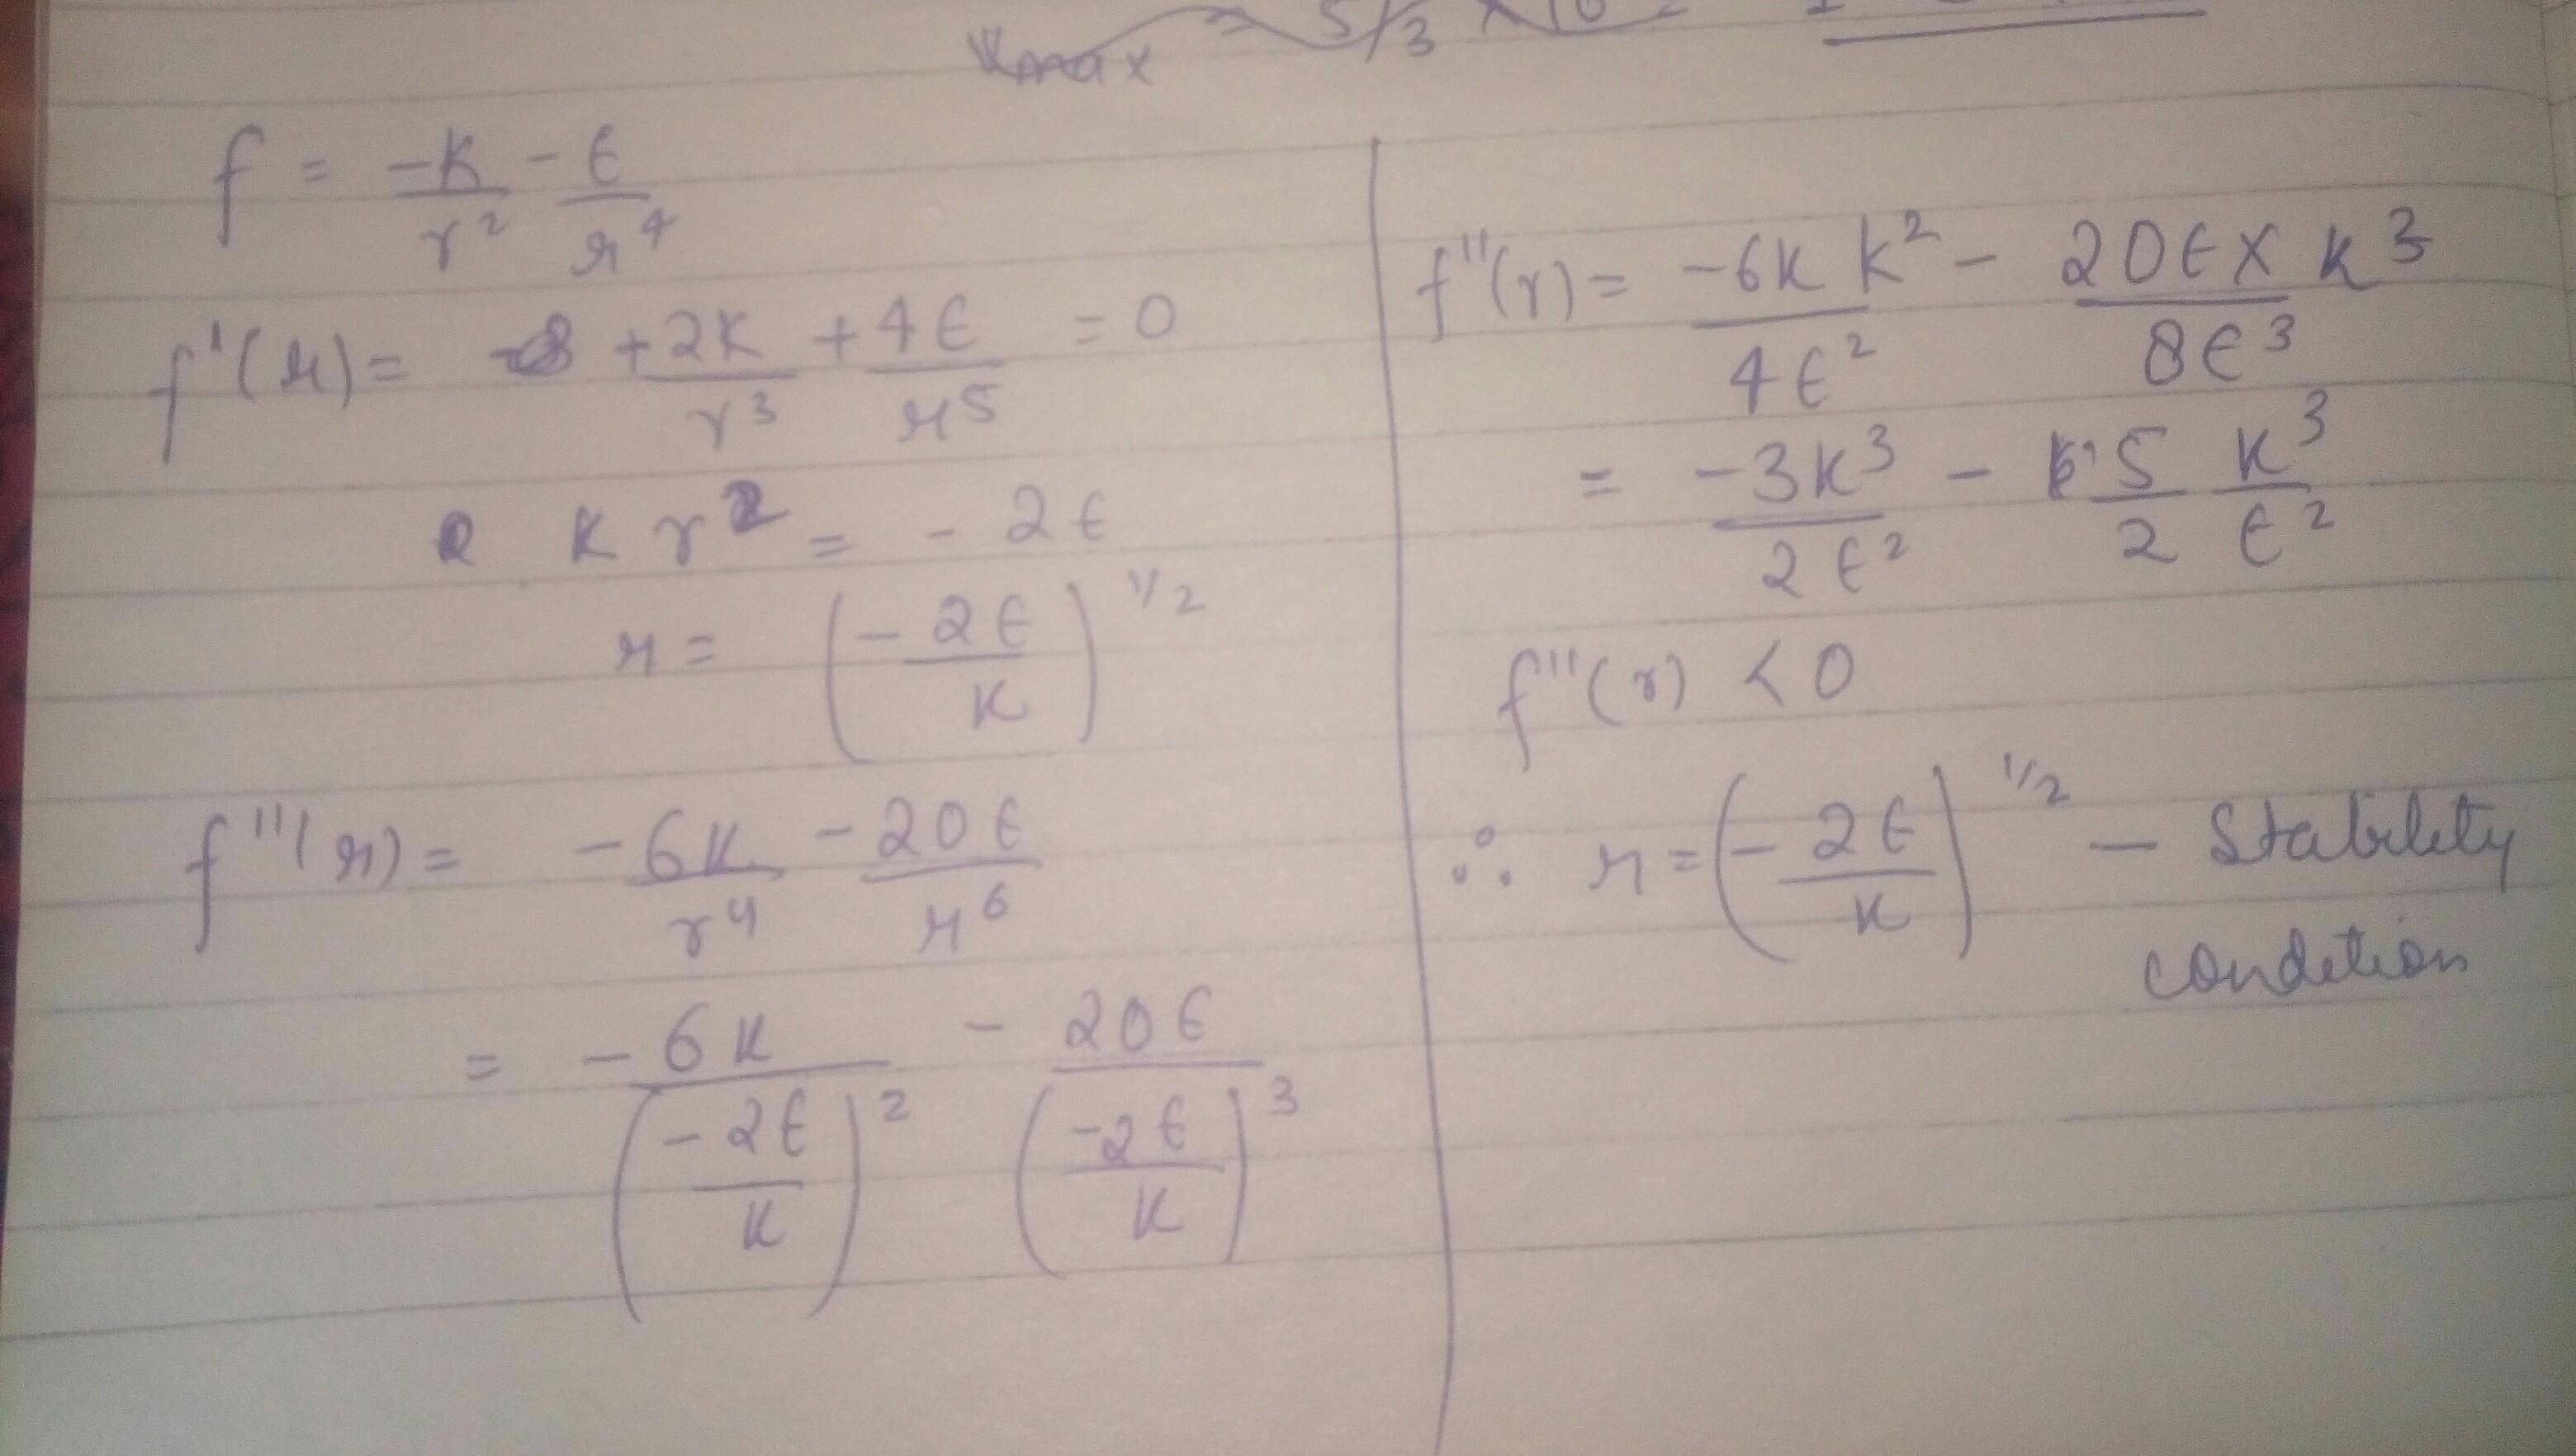 Kmax = 5/3 × 10
f = -K/r² - ϵ/r⁴
f'(r) = +2K/r³ + 4ϵ/r⁵ = 0
K r² = - 2ϵ
r = (-2ϵ/K)^1/2
f''(r) = -6K/r⁴ - 20ϵ/r⁶
= -6K/(-2ϵ/K)² - 20ϵ/(-2ϵ/K)³
f''(r) = -6K K²/4ϵ² - 20ϵ × K³/8ϵ³
= -3K³/2ϵ² - 5/2 K³/ϵ²
f''(r) < 0
∴ r = (-2ϵ/K)^1/2 – Stability
condition